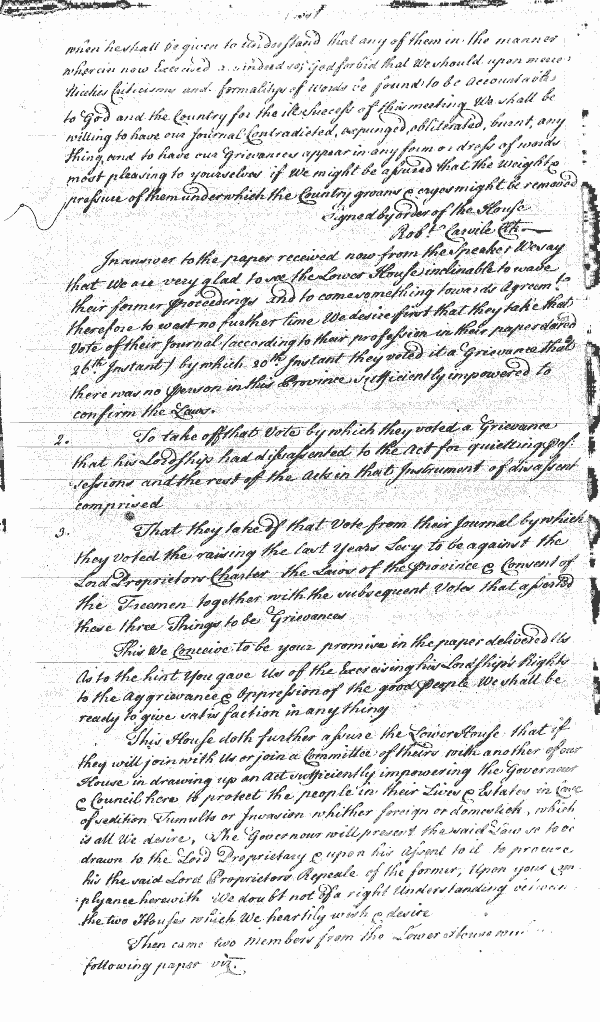 when he shall be given to understand that any of them in the manner
wherein now Exercised a hindred so; God forbid that We should upon meer
Niceties Criticisms and formalitys of Words be found to be Accountable
to God and the Country for the ill Success of this meeting We shall be
willing to have our Journal Contradicted, expunged, obliterated, burnt, any
thing, and to have our Grievances appear in any form or dress of words
most pleasing to yourselves if We might be assured that the Weight &
pressure of them under which the Country groans & cryes might be removed
Signed by order of the House
Robt Carvile Clk
In answer to the paper received now from the Speaker We say
that We are very glad to see the Lower House inclinable to wave
their former Proceedings and to come something towards Agreemt
therefore to wast no further time We desire first that they take that
Vote of their Journal (according to their profession in their paper dated
26th Instant) by which 20th Instant they voted it a Grievance that
there was no Person in this Province sufficiently impowered to
confirm the Laws.
2. To take off that Vote by which they voted a Grievance
that his Lordship had disassented to the Act for quietting pos:
sessions and the rest of the Acts in that Instrument of disassent
comprised
3. That they take of that Vote from their Journal by which
they voted the raising the last Years Levy to be against the
Lord Proprietors Charter the Laws of the Province & Consent of
the Freemen together with the subsequent Votes that asserted
these three Things to be Grievances
This We Conceive to be your promise in the paper delivered Us
As to the hint You gave Us of the Exercising his Lordship's Rights
to the Aggrievance & Oppression of the good People We shall be
ready to give satisfaction in any thing
This House doth further assure the Lower House that if
they will join with Us or join a Committee of theirs with another of our
House in drawing up an Act sufficiently impowering the Governour
& Council here to protect the people in their Lives & Estates in Case
of sedition Tumults or Invasion whither foreign or domestick, which
is all We desire, The Governour will present the said Law so to be
drawn to the Lord Proprietary & upon his Assent to it to procure
his the said Lord Proprietors Repeale of the former, Upon your Com
plyance herewith We doubt not of a right Understanding between
the two Houses which We heartily wish & desire
Then came two members from the Lower House
following paper vizt.